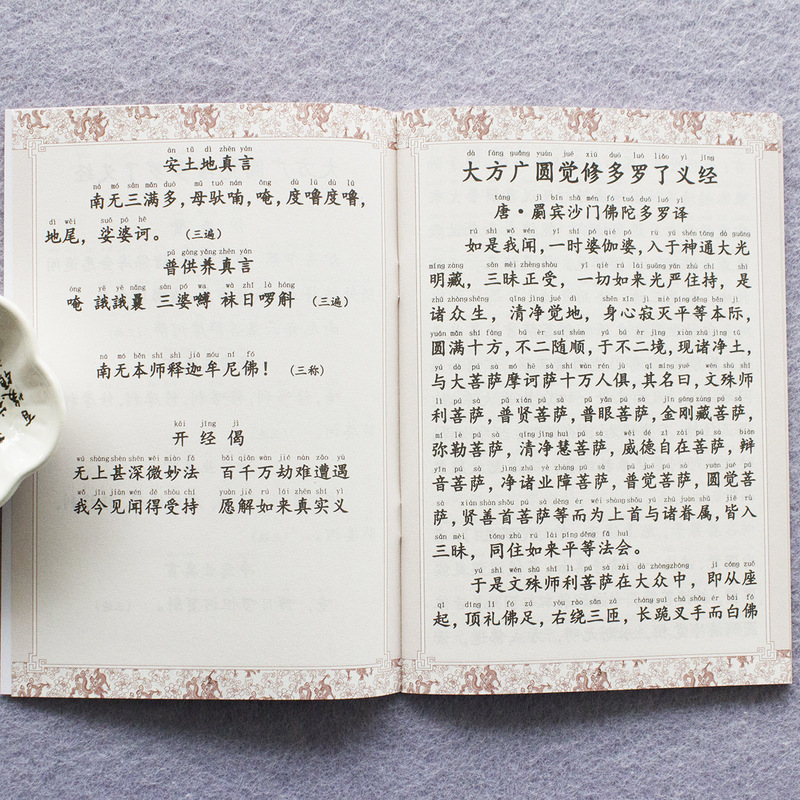 ān tǔ dì zhēn yán
安土地真言
nā mó sān mǎn duō mǔ tuó nán ōng dù lǔ dù lǔ
南无三满多，母驮喃，唵，度噜度噜，
dì wěi suō pó hē
地尾，娑婆诃。（三遍）
pǔ gòng yǎng zhēn yán
普供养真言
唵 誐誐曩 三婆嚩 袜日啰斛 （三遍）
nā mó běn shī shì jiā móu ní fó
南无本师释迦牟尼佛！（三称）
kāi jīng jì
开 经 偈
wú shàng shèn shēn wēi miào fǎ bǎi qiān wàn jié nán zāo yù
无上甚深微妙法 百千万劫难遭遇
wǒ jīn jiàn wén dé shòu chí yuàn jiě rú lái zhēn shí yì
我今见闻得受持 愿解如来真实义
dà fāng guǎng yuán jué xiū duō luó liǎo yì jīng
大方广圆觉修多罗了义经
táng jì bīn shā mén fó tuó duō luó yì
唐·罽宾沙门佛陀多罗译
rú shì wǒ wén yì shí pó qié pó rù yú shén tōng dà guāng
如是我闻，一时婆伽婆，入于神通大光
míng zàng sān mèi zhèng shòu yí qiè rú lái guāng yán zhù chí shì
明藏，三昧正受，一切如来光严住持，是
zhū zhòng shēng qīng jìng jué dì shēn xīn jì miè píng děng běn jì
诸众生，清净觉地，身心寂灭平等本际，
yuán mǎn shí fāng bú èr suí shùn yú bú èr jìng xiàn zhū jìng tǔ
圆满十方，不二随顺，于不二境，现诸净土，
yǔ dà pú sà mó hē sà shí wàn rén jù qí míng yuē wén shū shī
与大菩萨摩诃萨十万人俱，其名曰，文殊师
lì pú sà pǔ xián pú sà pǔ yǎn pú sà jīn gāng zàng pú sà
利菩萨，普贤菩萨，普眼菩萨，金刚藏菩萨，
mí lè pú sà qīng jìng huì pú sà wēi dé zì zài pú sà biàn
弥勒菩萨，清净慧菩萨，威德自在菩萨，辩
yīn pú sà jìng zhū yè zhàng pú sà pǔ jué pú sà yuán jué pú
音菩萨，净诸业障菩萨，普觉菩萨，圆觉菩
sà xián shàn shǒu pú sà děng ér wéi shàng shǒu yǔ zhū juàn shǔ jiē rù
萨，贤善首菩萨等而为上首与诸眷属，皆入
sān mèi tóng zhù rú lái píng děng fǎ huì
三昧，同住如来平等法会。
yú shì wén shū shī lì pú sà zài dà zhòng zhōng jí cóng zuò
于是文殊师利菩萨在大众中，即从座
qǐ dǐng lǐ fó zú yòu rào sān zā cháng guì chā shǒu ér bái fó
起，顶礼佛足，右绕三匝，长跪叉手而白佛